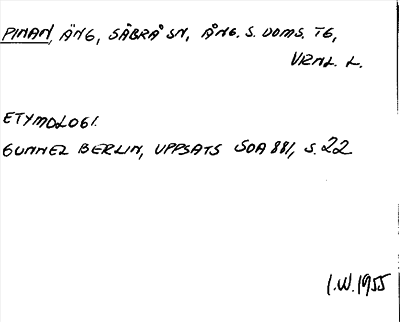 PINAN, ÄNG, SÄBRÅ SN, ÅNG. S. DOMS. TG,
VRNL. L.
ETYMOLOGI.
GUNNEL BERLIN, UPPSATS SOA 881, S. 22
I.W. 1955